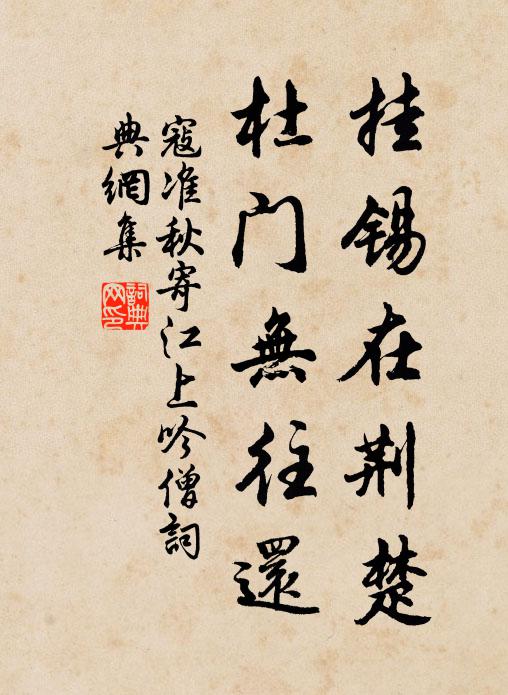 挂锡在荆楚
杜门無往還
寇准秋寄江上吟僧詞
典網集
詞典
网印